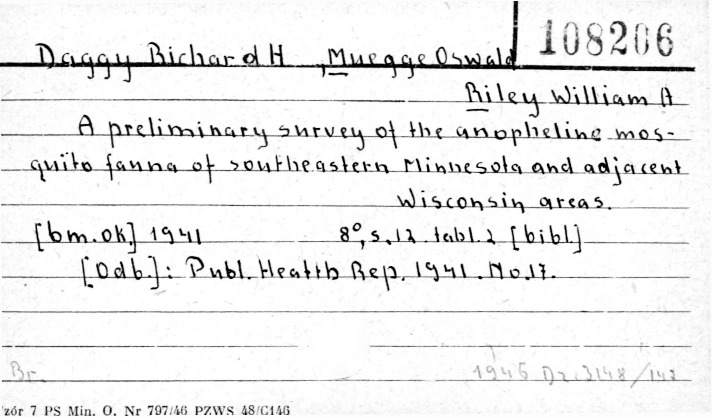 108206
Daggy Richard H, Muegge Oswald
Riley William A
A preliminary survey of the anopheline mos-
quito fanna of southeastern Minnesota and adjacent
Wisconsin areas.
[bm. ok.] 1941 8°, s. 12. tabl. 2 [bibl.]
[Odb.]: Publ. Health Rep. 1941. No. 17.
Br. 1946 Dz. 3148/142
zór 7 PS Min. O. Nr 797/46 PZWS 48/C146